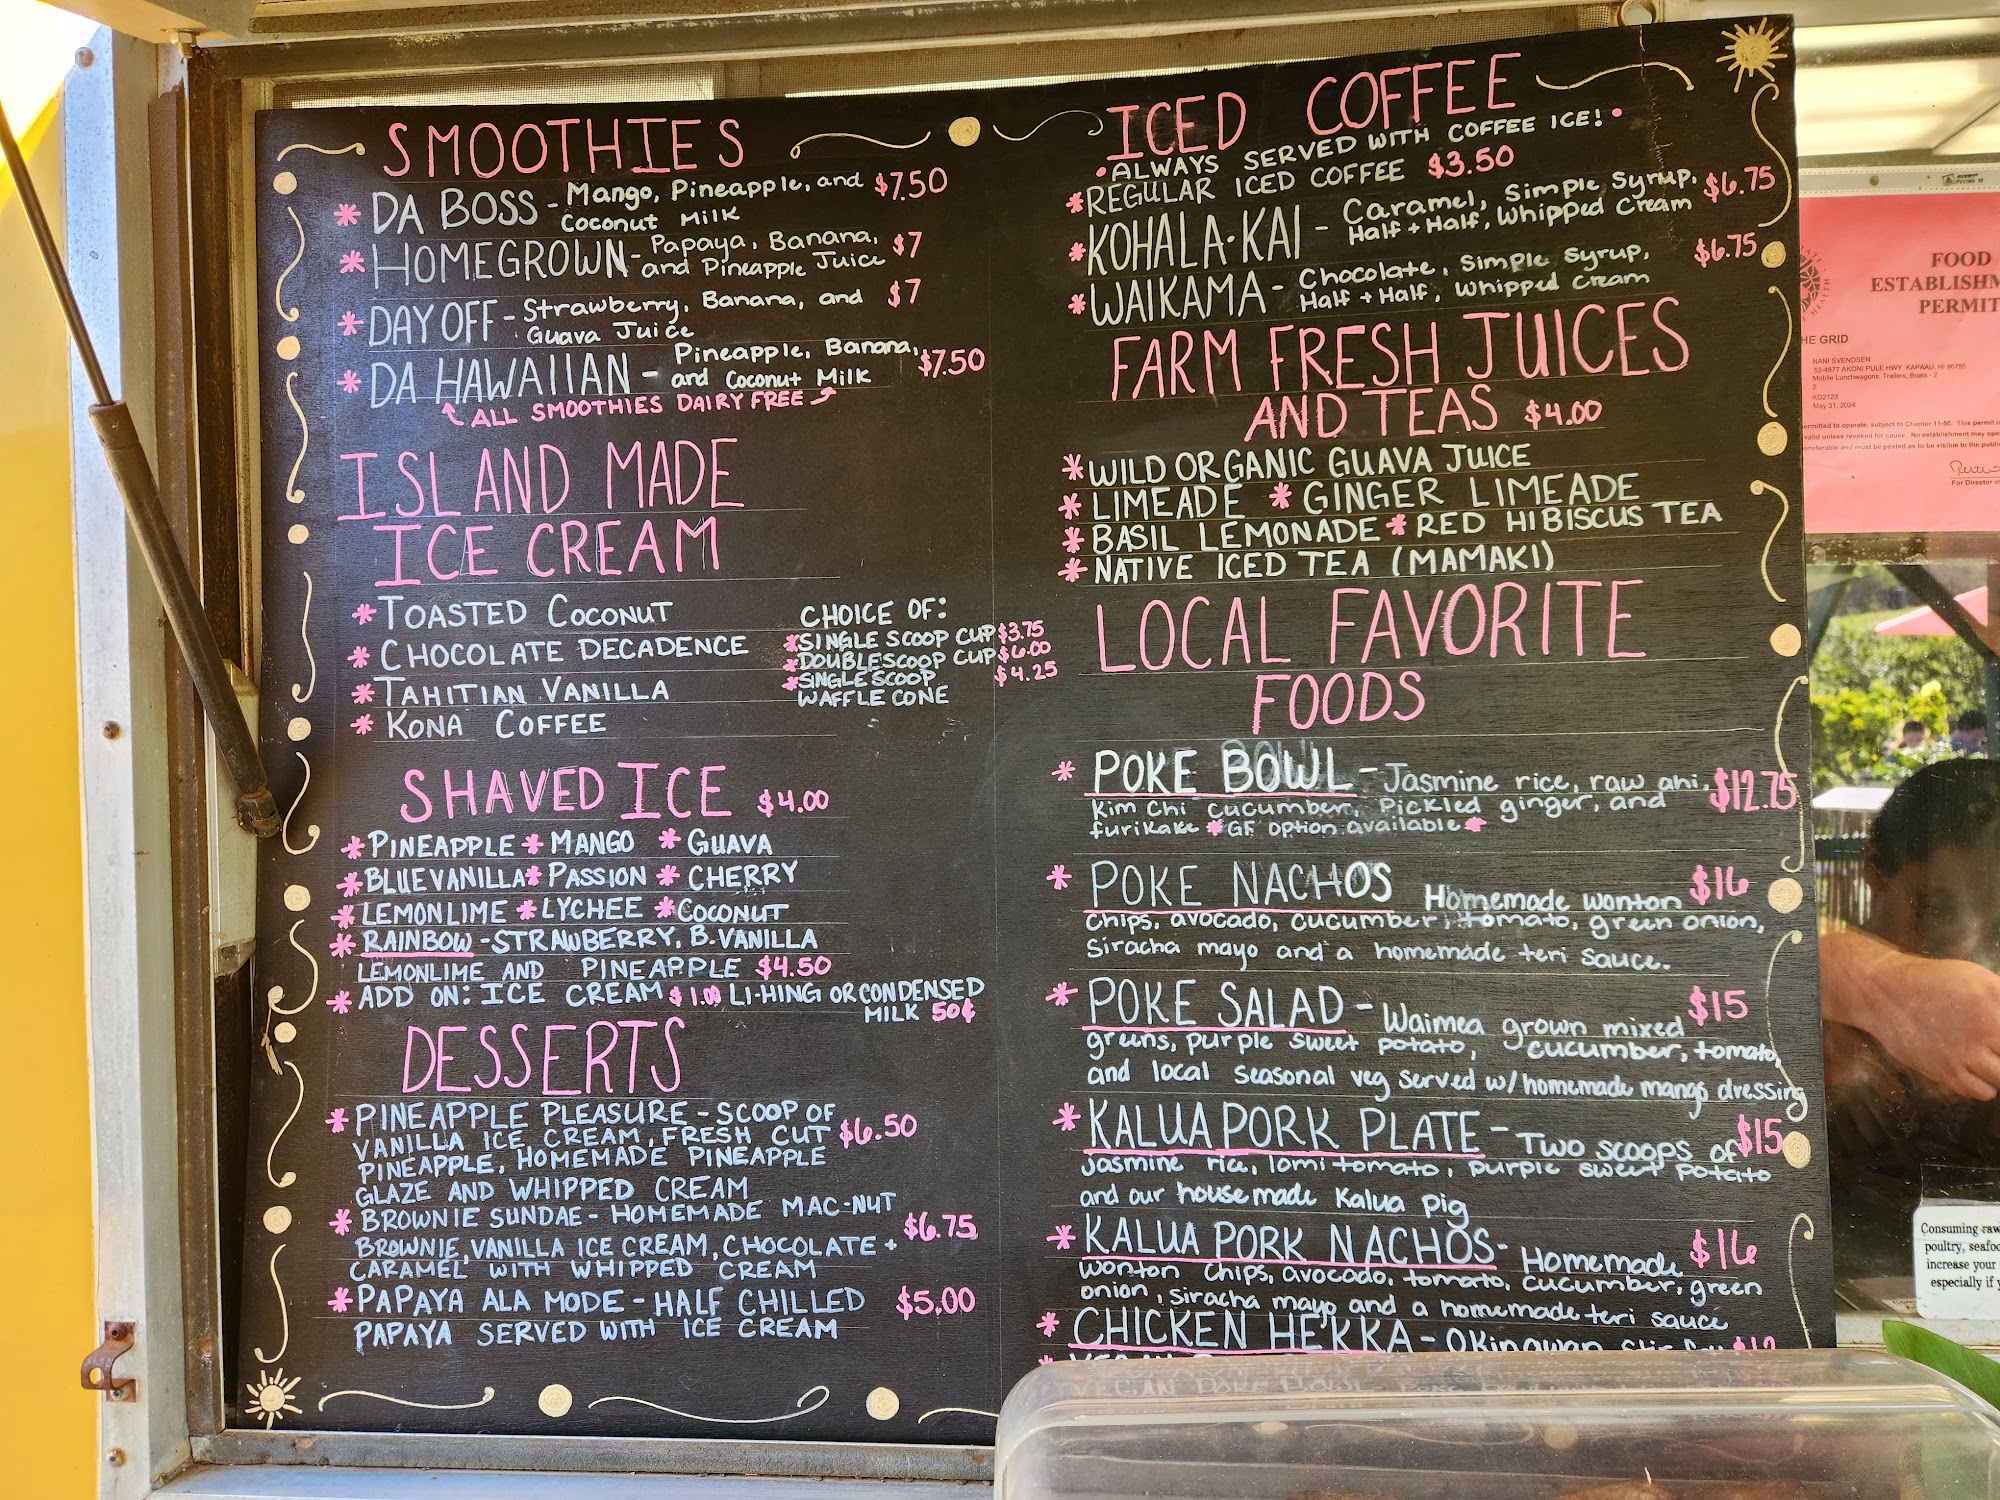 SMOOTHIES
* DA BOSS - Mango, Pineapple, and $7.50
Coconut Milk
* HOMEGROWN - Papaya, Banana, $7
and Pineapple Juice
* DAY OFF - Strawberry, Banana, and $7
Guava Juice
* DA HAWAIIAN - Pineapple, Banana, $7.50
and Coconut Milk
ALL SMOOTHIES DAIRY FREE
ISLAND MADE
ICE CREAM
* TOASTED COCONUT
* CHOCOLATE DECADENCE
* TAHITIAN VANILLA
* KONA COFFEE
CHOICE OF:
* SINGLE SCOOP CUP $3.75
* DOUBLE SCOOP CUP $6.00
* SINGLE SCOOP $4.25
WAFFLE CONE
SHAVED ICE $4.00
* PINEAPPLE * MANGO * GUAVA
* BLUE VANILLA * PASSION * CHERRY
* LEMONLIME * LYCHEE * COCONUT
* RAINBOW - STRAWBERRY, B. VANILLA
LEMONLIME AND PINEAPPLE $4.50
* ADD ON: ICE CREAM $1.00 LI-HING OR CONDENSED
MILK 50¢
DESSERTS
* PINEAPPLE PLEASURE - SCOOP OF
VANILLA ICE CREAM, FRESH CUT $6.50
PINEAPPLE, HOMEMADE PINEAPPLE
GLAZE AND WHIPPED CREAM
* BROWNIE SUNDAE - HOMEMADE MAC-NUT
BROWNIE, VANILLA ICE CREAM, CHOCOLATE + $6.75
CARAMEL WITH WHIPPED CREAM
* PAPAYA ALA MODE - HALF CHILLED $5.00
PAPAYA SERVED WITH ICE CREAM
ICED COFFEE
• ALWAYS SERVED WITH COFFEE ICE! •
* REGULAR ICED COFFEE $3.50
* KOHALA·KAI - Caramel, Simple Syrup, $6.75
Half + Half, Whipped Cream
* WAIKAMA - Chocolate, Simple Syrup, $6.75
Half + Half, Whipped Cream
FARM FRESH JUICES
AND TEAS $4.00
* WILD ORGANIC GUAVA JUICE
* LIMEADE * GINGER LIMEADE
* BASIL LEMONADE * RED HIBISCUS TEA
* NATIVE ICED TEA (MAMAKI)
LOCAL FAVORITE
FOODS
* POKE BOWL - Jasmine rice, raw ahi, $12.75
Kim Chi cucumber, Pickled ginger, and
furikake * GF option available *
* POKE NACHOS Homemade wonton $16
chips, avocado, cucumber, tomato, green onion,
Siracha mayo and a homemade teri sauce.
* POKE SALAD - Waimea grown mixed $15
greens, purple sweet potato, cucumber, tomato,
and local seasonal veg served w/ homemade mango dressing
* KALUA PORK PLATE - Two scoops of $15
Jasmine rice, lomi tomato, purple sweet potato
and our housemade Kalua pig
* KALUA PORK NACHOS - Homemade $16
wonton chips, avocado, tomato, cucumber, green
onion, siracha mayo and a homemade teri sauce
* CHICKEN HEKKA - Okinawan
VEGAN POKE BOWL -
FOOD
ESTABLISHM
PERMIT
HE GRID
NANI SVENDSEN
52-4877 AKONI PULE HWY KAPAAU, HI 96755
Mobile Lunchwagons, Trailers, Boats - 2
2
KO2123
May 31, 2024
For Director of
Consuming raw
poultry, seafoo
increase your
especially if y